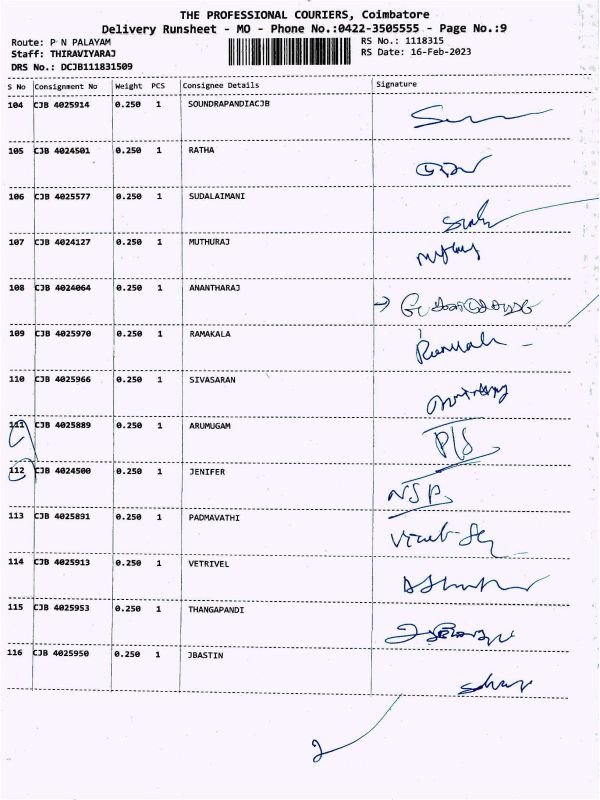 THE PROFESSIONAL COURIERS, Coimbatore
Delivery Runsheet - MO - Phone No.:0422-3505555 - Page No.:9
Route: P N PALAYAM
RS No.: 1118315
Staff: THIRAVIYARAJ
RS Date: 16-Feb-2023
DRS No.: DCJB111831509
S No Consignment No Weight PCS Consignee Details Signature
104 CJB 4025914 0.250 1 SOUNDRAPANDIACJB
105 CJB 4024501 0.250 1 RATHA
106 CJB 4025577 0.250 1 SUDALAIMANI
107 CJB 4024127 0.250 1 MUTHURAJ
108 CJB 4024064 0.250 1 ANANTHARAJ
109 CJB 4025970 0.250 1 RAMAKALA
110 CJB 4025966 0.250 1 SIVASARAN
111 CJB 4025889 0.250 1 ARUMUGAM
112 CJB 4024500 0.250 1 JENIFER
NSP
113 CJB 4025891 0.250 1 PADMAVATHI
114 CJB 4025913 0.250 1 VETRIVEL
115 CJB 4025953 0.250 1 THANGAPANDI
116 CJB 4025950 0.250 1 JBASTIN